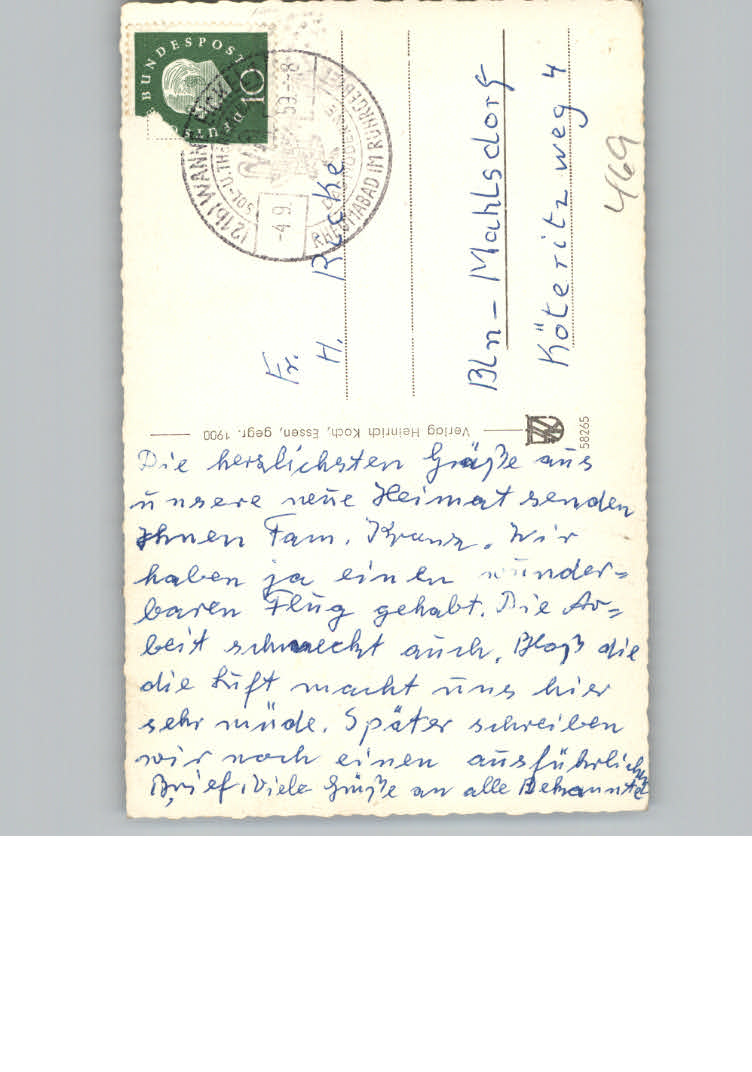 DEUTSCHE
BUNDESPOST
10
(21b) WANNE-EICKEL
-4.9. 59.-8
RHEUMABAD IM RUHRGEBIET
SOL- U. THER
Fr.
H. Rucke
Bln - Mahlsdorf
Köteritzweg 4
469
Verlag Heinrich Koch, Essen, gegr. 1900
58265
Die herzlichsten Grüße aus
unsere neue Heimat senden
Ihnen Fam. Kranz. Wir
haben ja einen wunder=
baren Flug gehabt. Die Ar=
beit schmeckt auch. Bloß die
die Luft macht uns hier
sehr müde. Später schreiben
wir noch einen ausführlichen
Brief. Viele Grüße an alle Bekannte